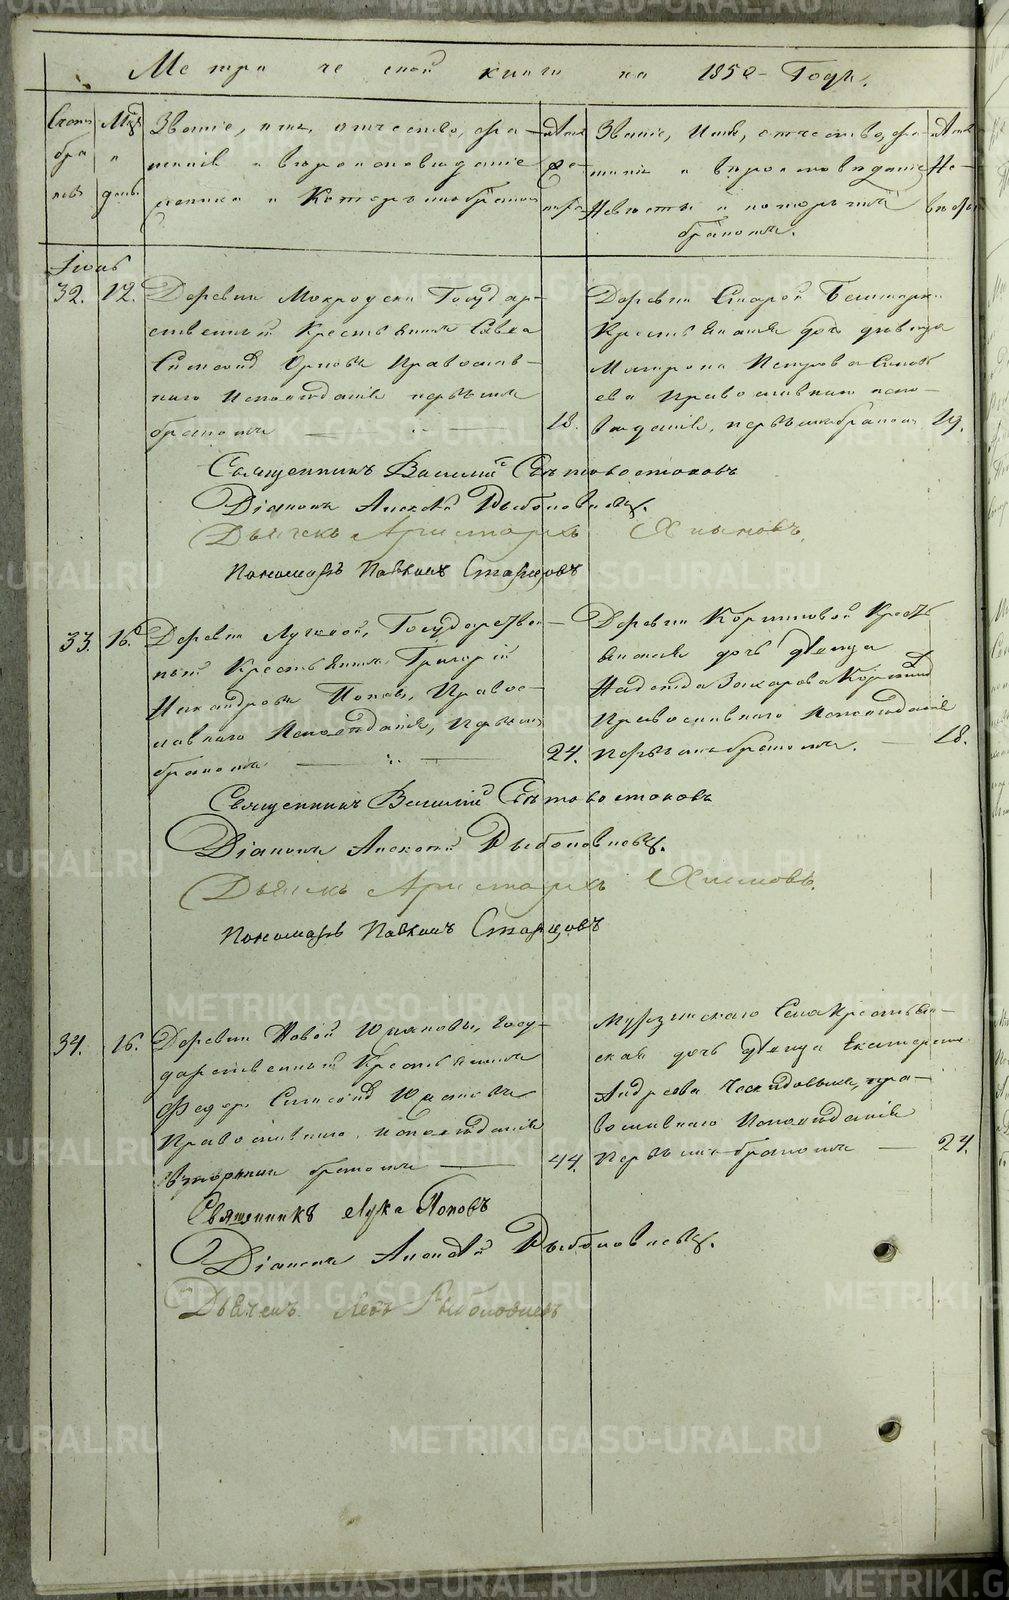 Метрической книги на 1850 Годъ.
Счетъ
бра
ковъ
Мцъ
и
день
Званіе, имя, отчество, фа-
милія и вѣроисповѣданіе
жениха и Которымъ бракомъ
лѣта
же-
ниха
Званіе, Имя, отчество, фа-
милія и вѣроисповѣданіе
Невѣсты и которымъ
бракомъ.
лѣта
Не-
вѣсты
32. 12. Деревни Мокроуски Государ-
ственный Крестьянинъ Савва
Орловъ Православ-
наго Исповѣданія первымъ
бракомъ 18.
Деревни Старой
Крестьянская дочь дѣвица
Матрона Петрова
Православнаго испо-
вѣданія, первымъ бракомъ 19.
Священникъ Василий Свѣтовостоковъ
Діаконъ Алексѣй Рыболовлевъ.
Дьячекъ Аристархъ
Пономарь Павлинъ Старцовъ
33. 16. Деревни Луговой, Государствен-
ный Крестьянинъ Григорій
Никандровъ Поповъ, Правос-
лавнаго Исповѣданія, Первымъ
бракомъ 24.
Деревни Кортиковой Крест-
янская дочь дѣвица
Надежда Захарова
Православнаго Исповѣданія
Первымъ бракомъ. 18.
Священникъ Василий Свѣтовостоковъ
Діаконъ Алексѣй Рыболовлевъ.
Дьячекъ Аристархъ
Пономарь Павлинъ Старцовъ
34. 16. Деревни Новой Госу-
дарственный Крестьянинъ
Федоръ
Православнаго Исповѣданія
Вторымъ бракомъ 44.
Мурзинскаго Села Крестьян-
ская дочь дѣвица Екатерина
Андреева пра-
вославнаго Исповѣданія
Первымъ бракомъ 24.
Священникъ Лука Поповъ
Діаконъ Алексѣй Рыболовлевъ.
Дьячекъ Левъ Рыболовлевъ
METRIKI.GASO-URAL.RU